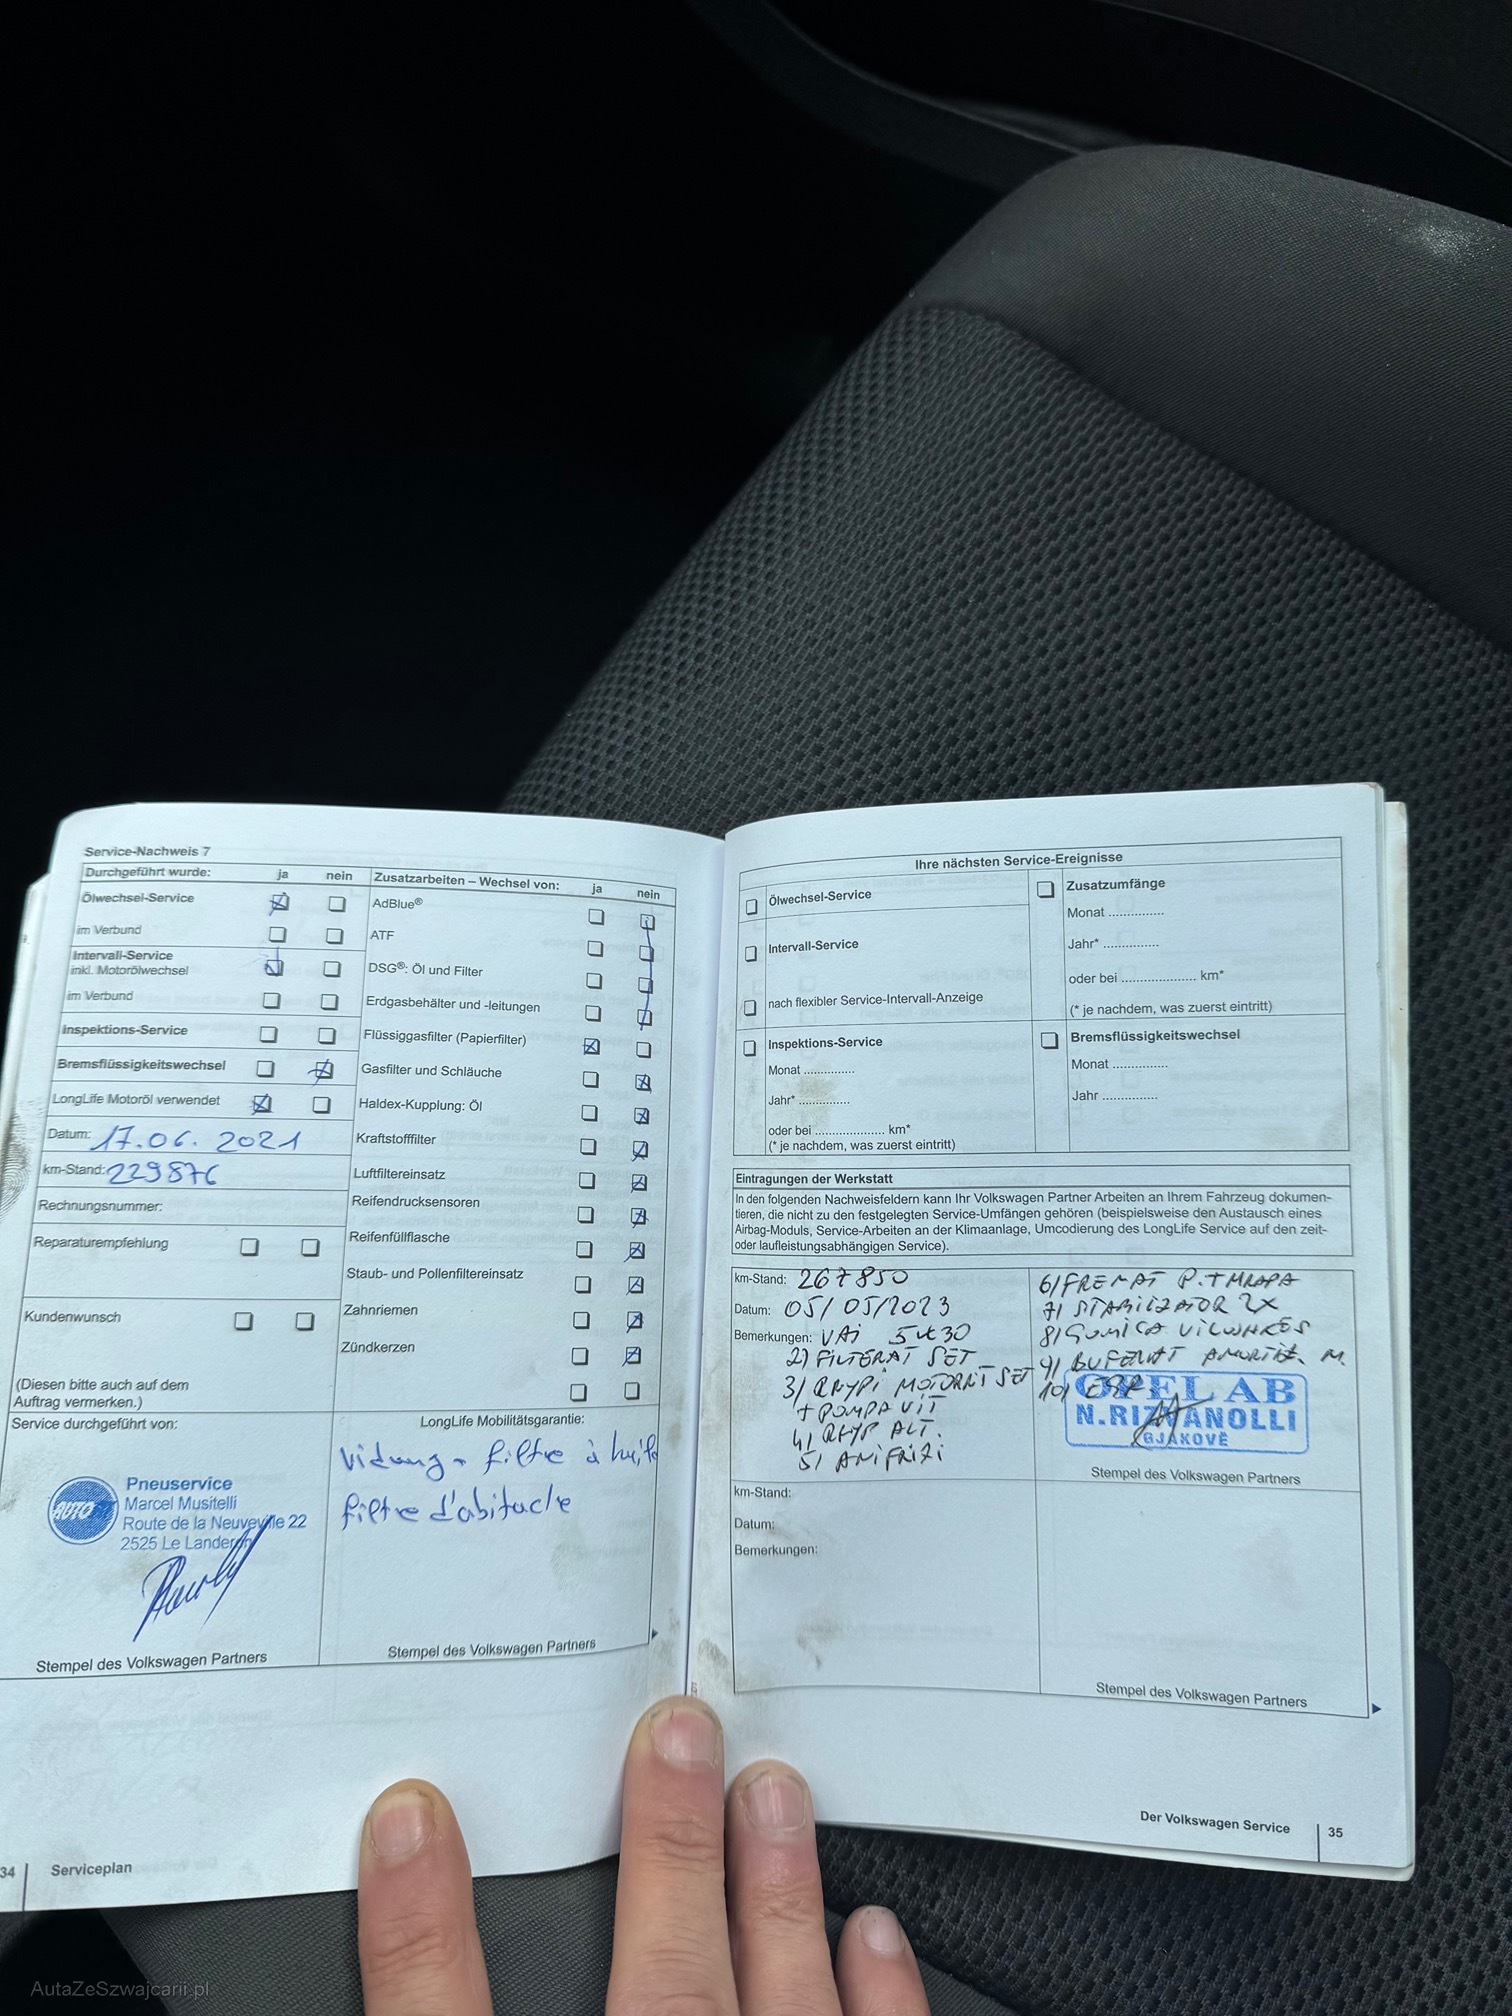 Service-Nachweis 7
Durchgeführt wurde: ja nein
Ölwechsel-Service
im Verbund
Intervall-Service
inkl. Motorölwechsel
im Verbund
Inspektions-Service
Bremsflüssigkeitswechsel
LongLife Motoröl verwendet
Datum: 17.06.2021
km-Stand: 229876
Rechnungsnummer:
Reparaturempfehlung
Kundenwunsch
(Diesen bitte auch auf dem
Auftrag vermerken.)
Service durchgeführt von:
Pneuservice
Marcel Musitelli
Route de la Neuveville 22
2525 Le Landeron
AUTO
Stempel des Volkswagen Partners
Zusatzarbeiten – Wechsel von: ja nein
AdBlue®
ATF
DSG®: Öl und Filter
Erdgasbehälter und -leitungen
Flüssiggasfilter (Papierfilter)
Gasfilter und Schläuche
Haldex-Kupplung: Öl
Kraftstofffilter
Luftfiltereinsatz
Reifendrucksensoren
Reifenfüllflasche
Staub- und Pollenfiltereinsatz
Zahnriemen
Zündkerzen
LongLife Mobilitätsgarantie:
filtre à huile
filtre d'abitacle
Stempel des Volkswagen Partners
34 Serviceplan
Ihre nächsten Service-Ereignisse
Ölwechsel-Service
Intervall-Service
nach flexibler Service-Intervall-Anzeige
Inspektions-Service
Monat ...............
Jahr* ...............
oder bei .................... km*
(* je nachdem, was zuerst eintritt)
Zusatzumfänge
Monat ...............
Jahr* ...............
oder bei .................... km*
(* je nachdem, was zuerst eintritt)
Bremsflüssigkeitswechsel
Monat ...............
Jahr ...............
Eintragungen der Werkstatt
In den folgenden Nachweisfeldern kann Ihr Volkswagen Partner Arbeiten an Ihrem Fahrzeug dokumen-
tieren, die nicht zu den festgelegten Service-Umfängen gehören (beispielsweise den Austausch eines
Airbag-Moduls, Service-Arbeiten an der Klimaanlage, Umcodierung des LongLife Service auf den zeit-
oder laufleistungsabhängigen Service).
km-Stand: 267850
Datum: 05/05/2023
Bemerkungen: VAI 5W30
2) FILTERAT SET
3) RRYPI MOTORRIT SET
+ POMPA UIT
4) RRYP ALT.
5) ANIFRIZI
6) FRENAT P. + MRAPA
7) STABILIZATOR 2X
8) GOMICA
9) BUFERAT AMORTIZ. M.
10) EGR
OPEL AB
N.RIZVANOLLI
GJAKOVË
Stempel des Volkswagen Partners
km-Stand:
Datum:
Bemerkungen:
Stempel des Volkswagen Partners
Der Volkswagen Service 35
AutaZeSzwajcarii.pl